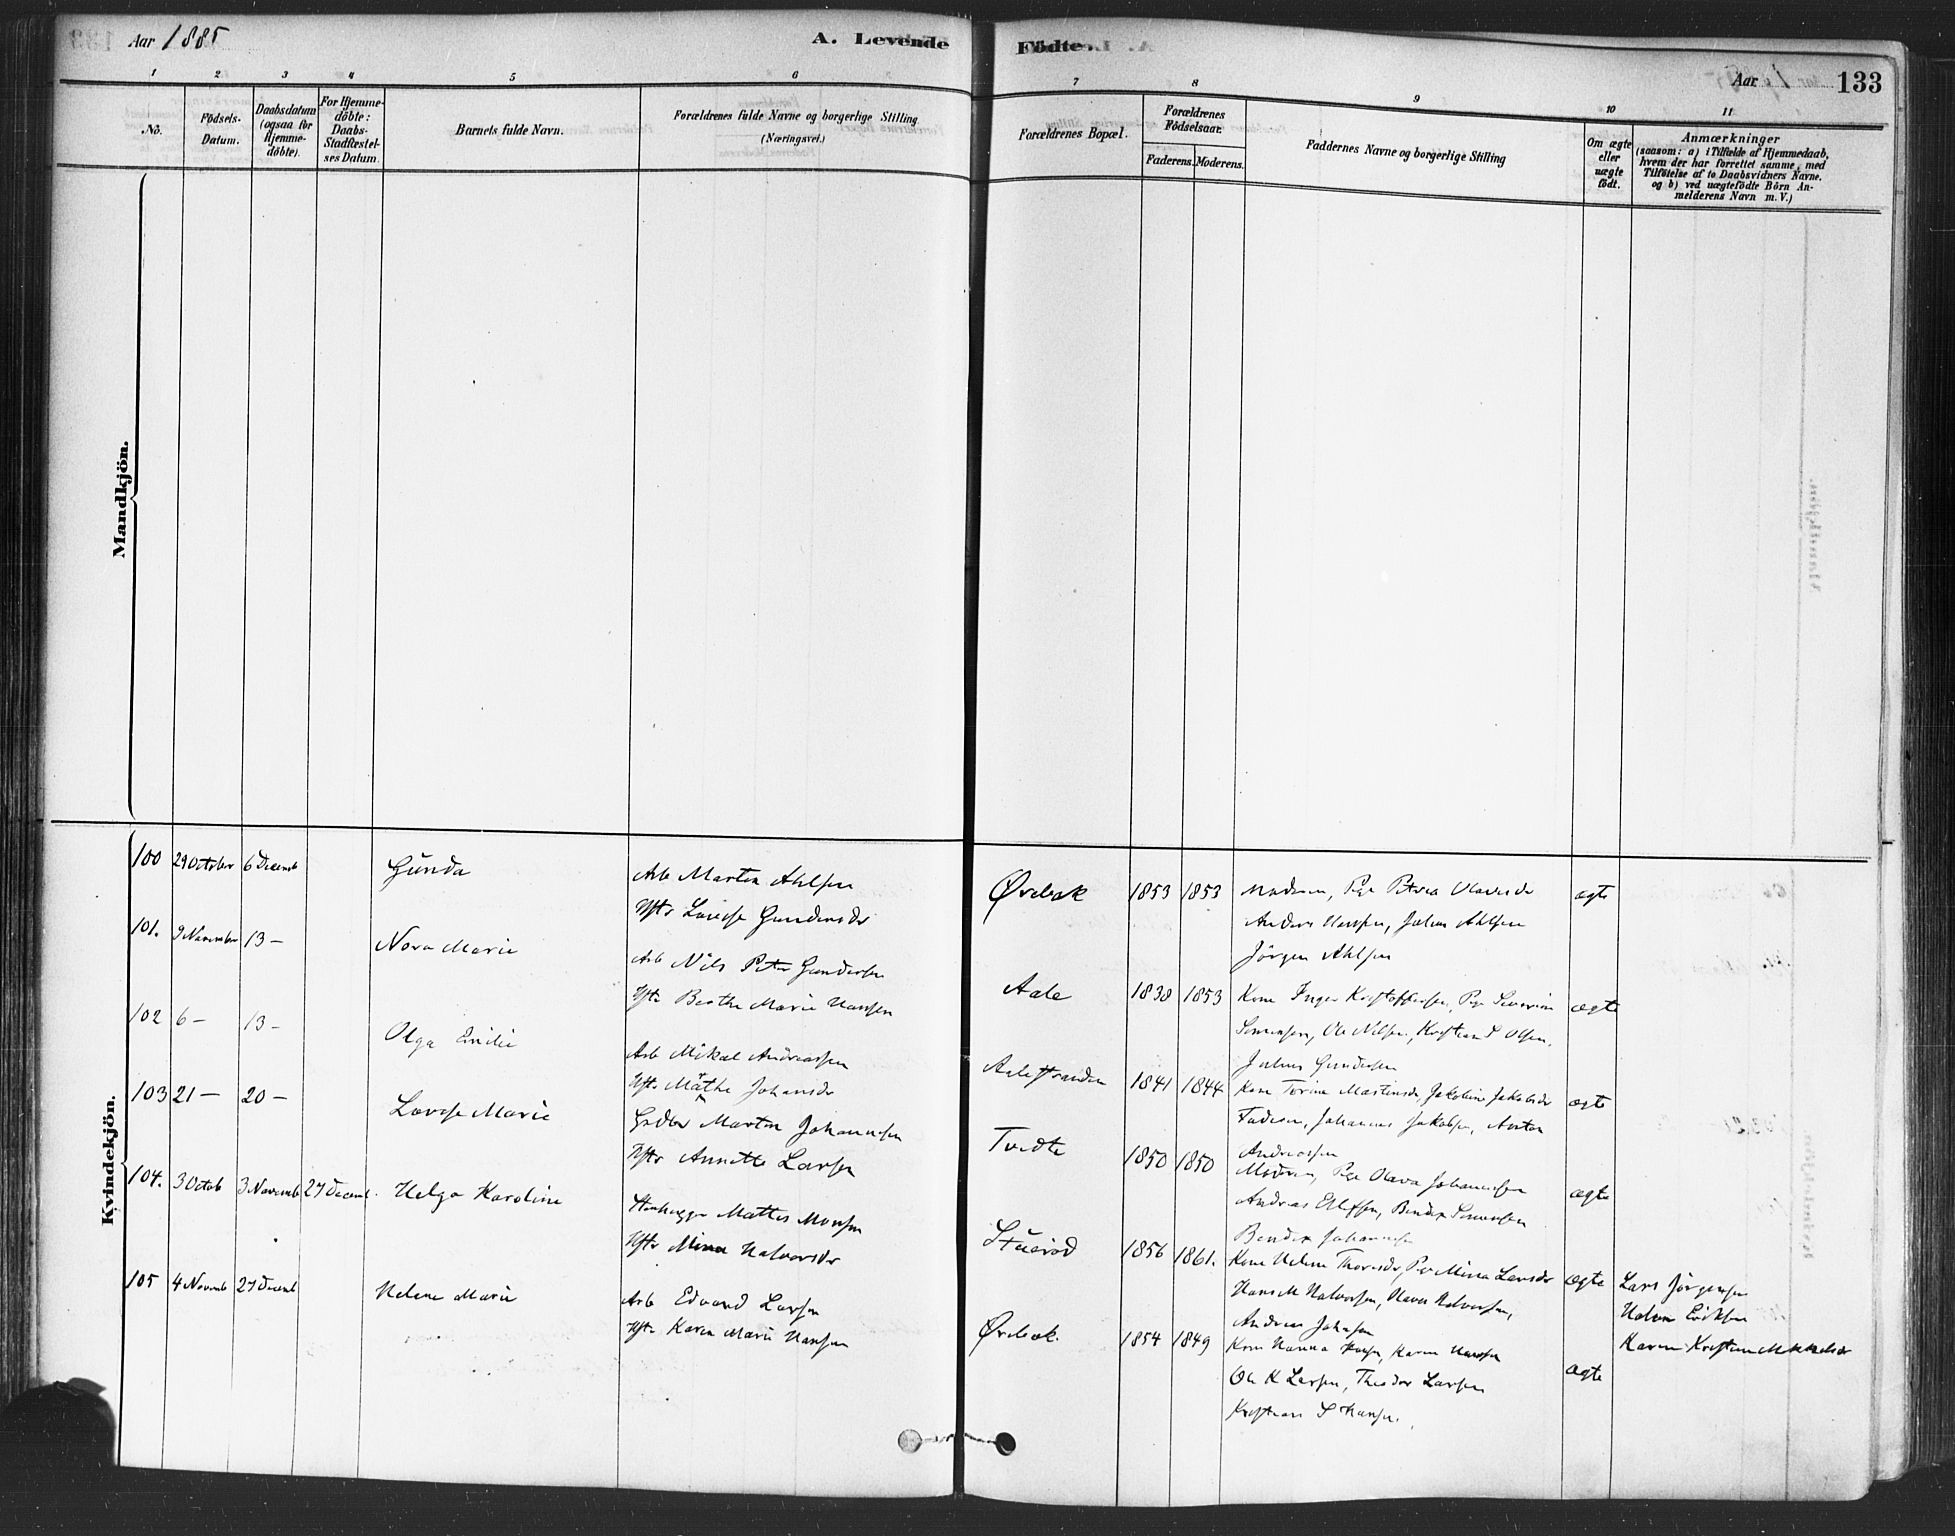 Aar 1885 A. Levende Födte. Aar 133
1 2 3 4 5 6 7 8 9 10 11
No.
Födsels-Datum.
Daabsdatum (ogsaa for Hjemme-döbte).
For Hjemme-döbte: Daabs-Stadfæstel-ses Datum.
Barnets fulde Navn.
Forældrenes fulde Navne og borgerlige Stilling (Næringsvei.)
Forældrenes Bopæl.
Forældrenes Födselsaar.
Faderens. Moderens.
Faddernes Navne og borgerlige Stilling
Om ægte eller uægte födt.
Anmærkninger
(saasom: a) i Tilfælde af Hjemmedaab,
hvem der har forrettet samme, med
Tilföielse af to Daabsvidners Navne.
og b) ved uægtefödte Börn An-
melderens Navn m. V.)
Mandkjön.
Kvindekjön.
100 29 October 6 Decemb Gunda Arb Martin Ahlsen Ørebæk 1853 1853 Moderen, Pige Petrea Olavesdr ægte
Hstr Lovise Gundersdr Anders Hansen, Julius Ahlsen
Jörgen Ahlsen
101. 9 November 13 – Nora Marie Arb Nils Peter Gundersen Aale 1838 1853 Kone Inger Kristoffersen, Pige Severine ægte
Hstr Berthe Marie Hansen Sörensen, Ole Nilsen, Kristian S Olsen,
Julius Gundersen
102 6 – 13 – Olga Emilie Arb Mikal Andreassen Aalestranden 1841 1844 Kone Torine Martinsdr, Jakobine Jakobsdr ægte
Hstr Mathe Johansdr Faderen, Johannes Jakobsen, Anton
Andreassen
103 21 – 20 – Lovise Marie Martin Johannesen Tvedte 1850 1850 Moderen, Pige Olava Johannesen ægte
Hstr Annette Larsen Andreas Ellefsen, Bendix Sörensen
Bendix Johannesen
104. 3 Octob 3 Novemb 27 Decemb. Helga Karoline Stenhugger Mathis Monsen 1856 1861. Kone Helene Thoresdr, Pige Mina Larsdr ægte Lars Jörgensen
Hstr Mina Halvorsdr Hans M Halvorsen, Halvor Halvorsen, Helene Eriksen
Andreas Johnsen Karen Kristine Mikkelsdr
105 4 Novemb 27 Decemb Helene Marie Arb Edvard Larsen Ørebæk. 1854 1849 Kone Hanna Hansen, Karen Hansen ægte
Hstr Karen Marie Hansen Ole K Larsen, Theodor Larsen
Kristian S Hansen.